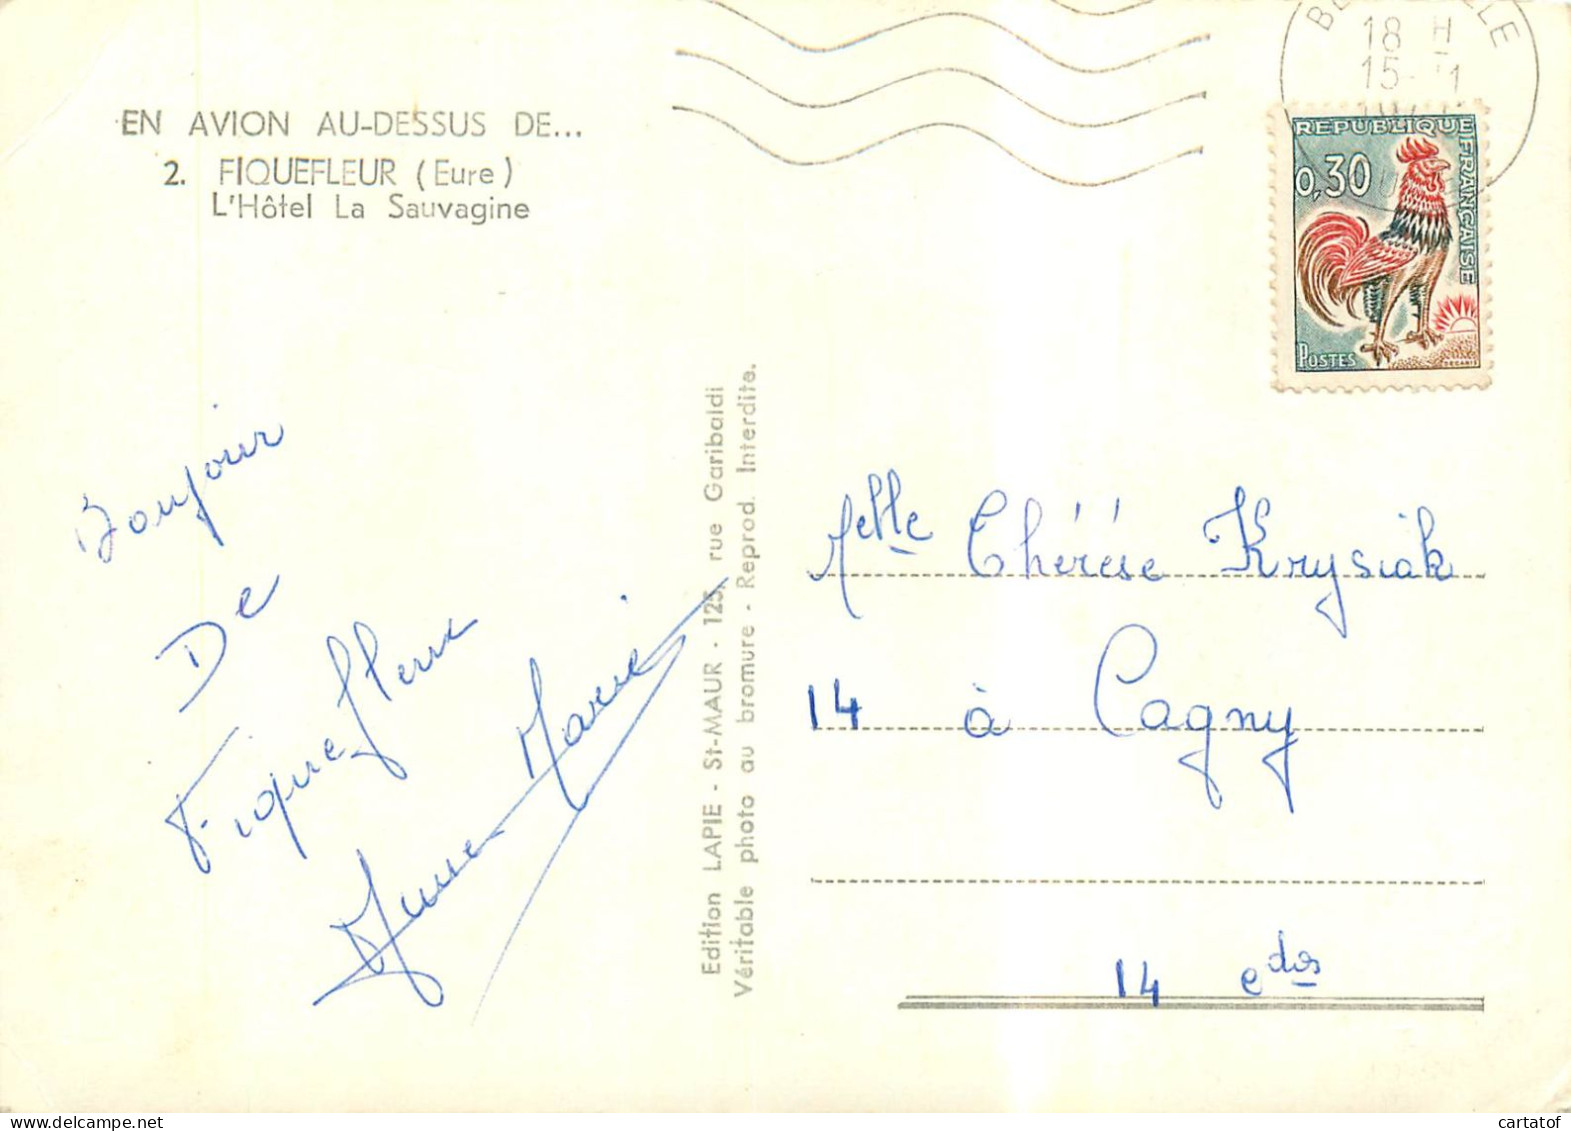 EN AVION AU-DESSUS DE...
2. FIQUEFLEUR (Eure)
L'Hôtel La Sauvagine
18 H
15
REPUBLIQUE FRANÇAISE
0,30
POSTES
DECARIS
Bonjour
De
Fiquefleur
Anne-Marie
Edition LAPIE - St-MAUR - 125, rue Garibaldi
Véritable photo au bromure - Reprod. Interdite.
Melle Thérése Krysiak
14 à Cagny
14 edos
cartatof